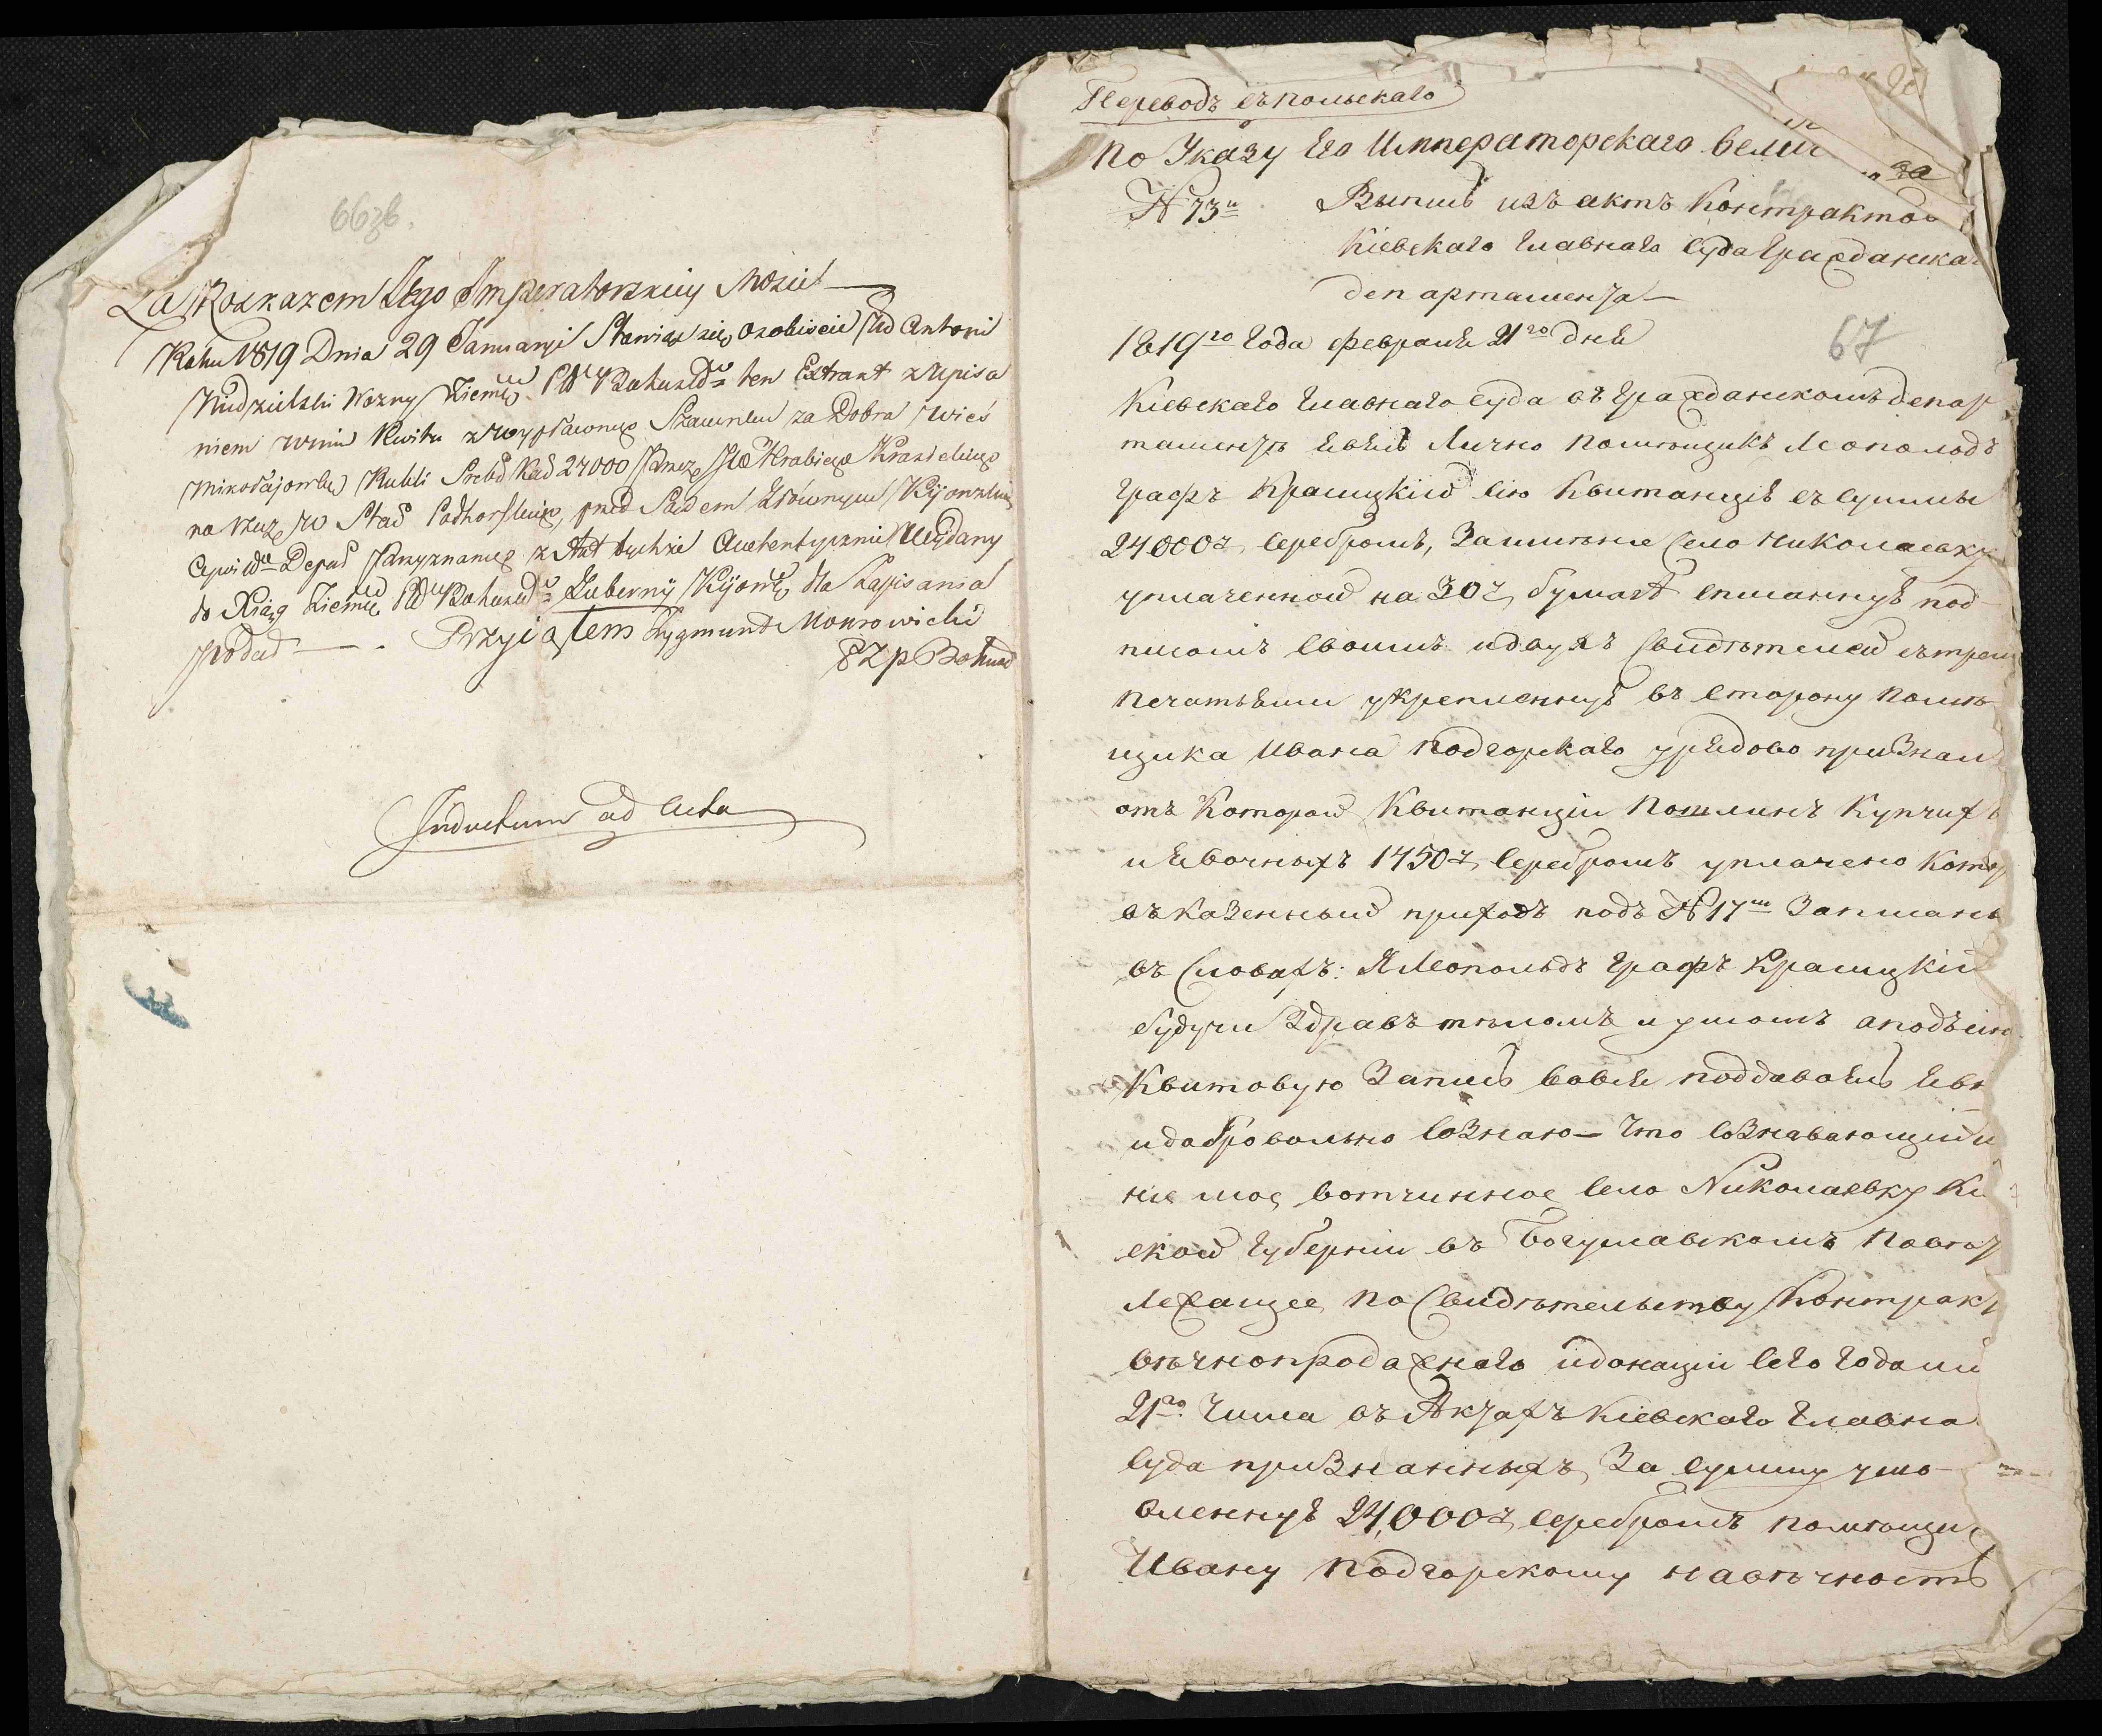 66зв.
Za Rozkazem Jego Imperatorskiey Mości
Roku 1819 Dnia 29 Januaryi Stawiąc się osobiście Ur Antoni
Nudzielski Wozny Ziems Pttu Bohusł ten Extrakt z Wpisa
niem w nim Kwitu z wypłaconego Szacunku za Dobra Wieś
Mikołajowkę Rubli Sreb 24000 Przez JW Hrabiego Krasickiego
na rzecz W Podhorskiego, przed Sądem Głównym Kijowskim
Cywil Depar Przyznanego z Akt tychże Autentycznie Wydany
do Xiąg Ziems Pttu Bohusł Guberny Kijows dla Zapisania
Podał — . Przyiąłem Zygmunt Mokrowicki
RZpBohusł
Inductum ad Acta
Переводъ съ польскаго
По Указу Его Императорскаго Велич
№ 73й Выпись изъ актъ Контрактов
Кіевскаго Главнаго Суда Гражданска
департамента —
1819го Года февраля 21го дня
67
Кіевскаго Главнаго Суда въ Гражданскомъ депар
таментѣ явясь Лично помѣщикъ Леопольдъ
Графъ Красицкій сію Квитанцію въ суммы
24000 серебромъ, За имѣніе Село Николаевку
уплаченной на 30 бумагѣ списанную под
писомъ своимъ и двухъ Свидѣтелей съ трем
печатьями укрепленную въ сторону помѣ
щика Ивана Подгорскаго урядово призналъ
отъ Которой Квитанціи Пошлинъ Купчихъ
и явочныхъ 1450 серебромъ уплачено Котор
въ казенный приходъ подъ № 17м Записаны
въ Словахъ: Я Леопольдъ Графъ Красицкій
будучи Здравъ тѣломъ и умомъ а подъ сію
Квитовую Запись вовся поддаваясь явн
и добровольно сознаю — что сознавающий и
ніе мое вотчинное село Николаевку Кі
ской Губерніи въ Богуславскомъ Повѣт
Лежащее, по Свидѣтельству Контракт
вѣчнопродажнаго и донаціи сего года ми
21го числа въ Актахъ Кіевскаго Главна
Суда признанныхъ, За сумму усло
вленную 24,000 серебромъ помѣщи
Ивану Подгорскому на вѣчность